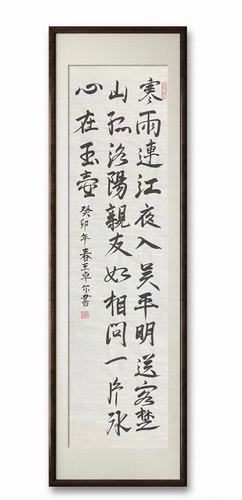 寒雨連江夜入吴平明送客楚
山孤洛陽親友如相問一片冰
心在玉壺
癸卯年春王卓尔書